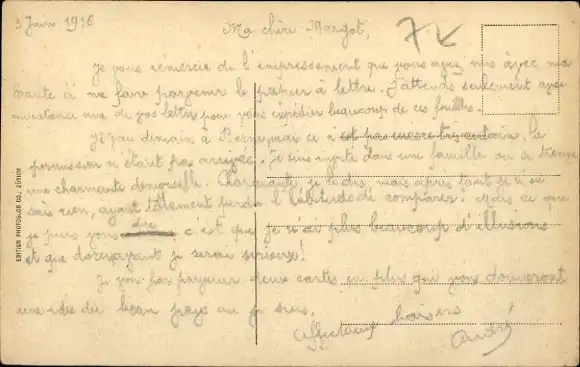 3 Janv 1916
Ma chère Margot,
Je vous remercie de l'empressement que vous avez mis avec ma
tante à me faire parvenir le papier à lettre. J'attends seulement avec
impatience une de vos lettres pour vous expédier beaucoup de ces feuilles.
demain à Berne, mais ce n'est pas encore certain, la
permission n'étant pas arrivée. Je suis invité dans une famille où se trouve
une charmante demoiselle. Charmante, je le dis, mais après tout je n'en
sais rien, ayant tellement perdu l'habitude de comparer! Mais ce que
je puis vous dire c'est que je n'ai plus beaucoup d'illusions
et que dorénavant je serai sérieux!
Je vous fais parvenir deux cartes en plus qui vous donneront
une idée du beau pays où je suis.
Affectueux baisers
André
EDITION PHOTOGLOB CO., ZÜRICH